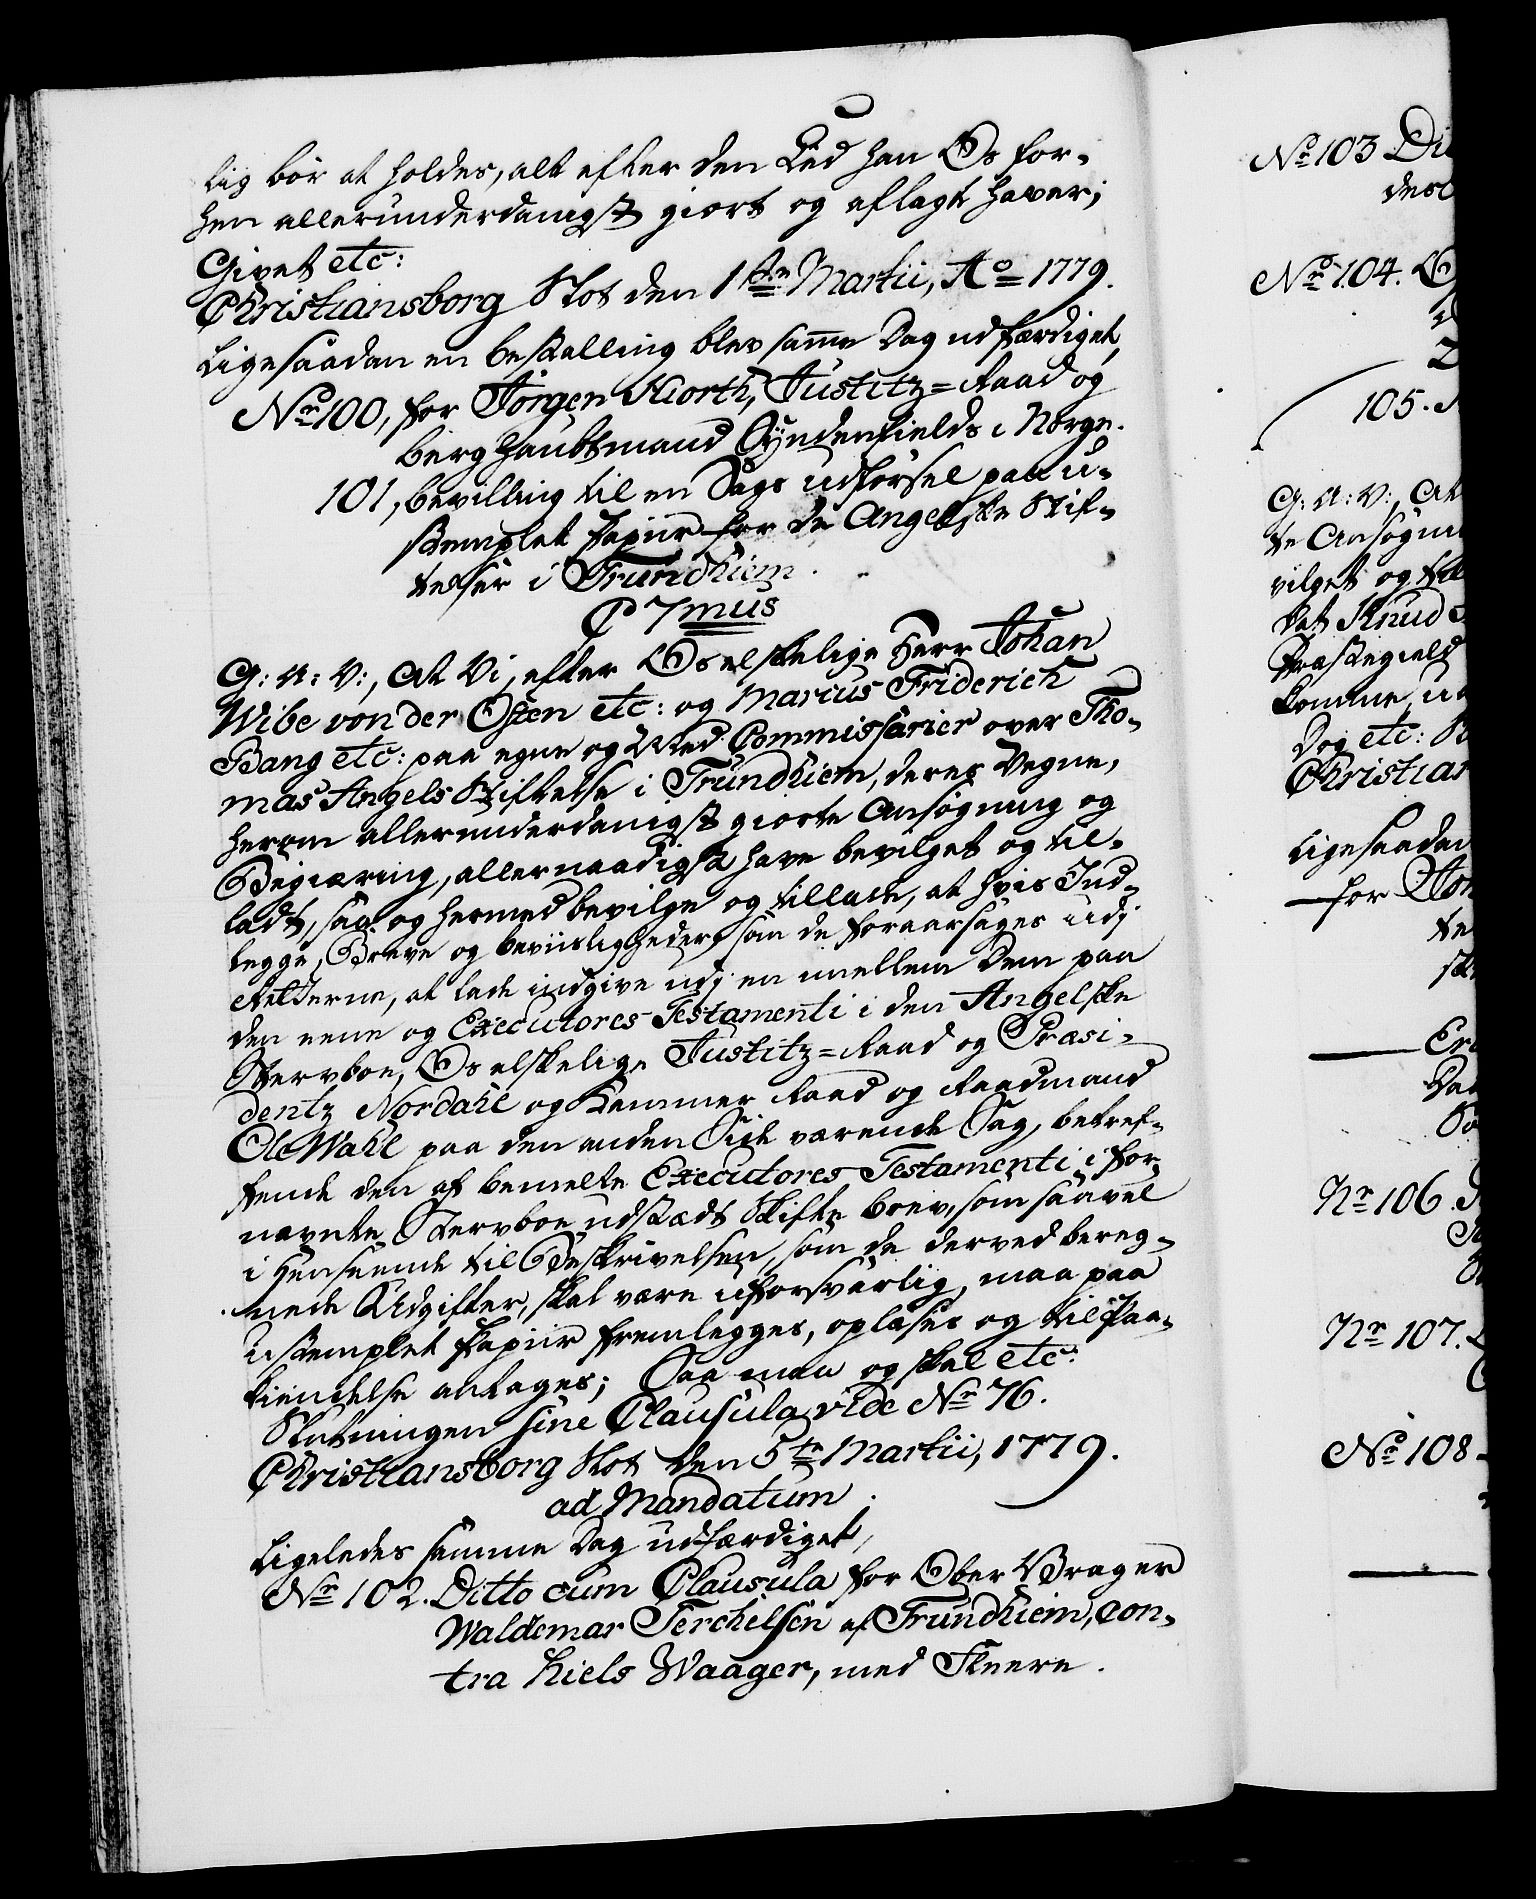 lig bør at holdes, alt efter den Eed han Os for-
hen allerunderdanigst giort og aflagt haver;
Givet etc:
Christiansborg Slot den 1ste Martii, Ao 1779.
Ligesaadan en bestalling blev samme Dag udfærdiget,
No 100, for Jörgen Hiorth, Justitz=Raad og
Berghaubtmand Syndenfields i Norge.
101, bevilling til en Sags udførsel paa u-
stemplet Papiir for de Angelske Stif-
telser i Trundhiem.
C 7mus
G: A: V:, At Vi, efter Os elskelige Herr Johan
Wibe von der Osten etc: og Marcus Friderich
Bang etc: paa egne og Med Commissarier over Tho-
mas Angels Stiftelse i Trundhiem, deres Vegne,
herom allerunderdanigst giorte Ansøgning og
Begiæring, allernaadigst have bevilget og til-
ladt, saa og hermed bevilge og tillade, at hvis Ind-
legge, Breve og beviisligheder, som de foraarsages udj
Retterne, at lade indgive udj en imellem Dem paa
den eene og Executores Testamenti i den Angelske
Stervboe, Os elskelige Justitz=Raad og Præsi-
dentz Nordahl og Kammer Raad og Raadmand
Ol: Wahl paa den anden Side værende Sag, betref-
fende den af bemelte Executores Testamenti i for-
nævnte Stervboe udstædt Skifte brev, som saavel
i Henseende til Beskrivelsen, som de derved bereg-
nede Udgifter, skal være uforsvarlig, maa paa
ustemplet Papiir fremlegges, oplæses og til Paa-
kiendelse antages; Saa maa og skal etc:
Slutningen sine Clausula vide No 76.
Christiansborg Slot den 5te Martii, 1779.
ad Mandatum.
Ligeledes samme Dag udfærdiget,
No 102. Ditto cum Clausula for Ober Vrager
Waldemar Terchelsen af Trundhiem, con-
tra Niels Waager, med Fleere.
No 103 Di
No 104.
105.
G: A: V:, At
te Ansøgn
vilget og til
Dat Knud
Præstegield
komme
Dog etc:
Christian
Ligesaadan
for
Nr 106.
Nr 107.
No 108